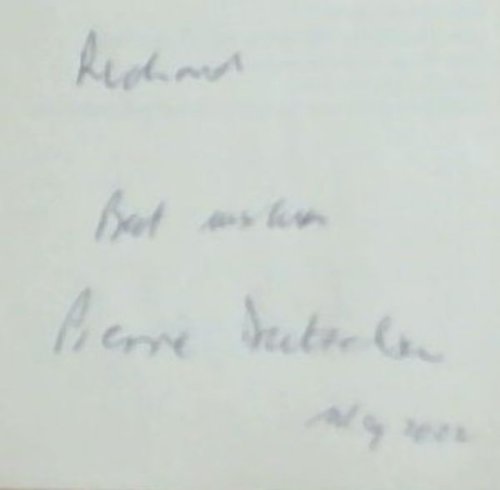 Richard
Best wishes
Pierre
2002